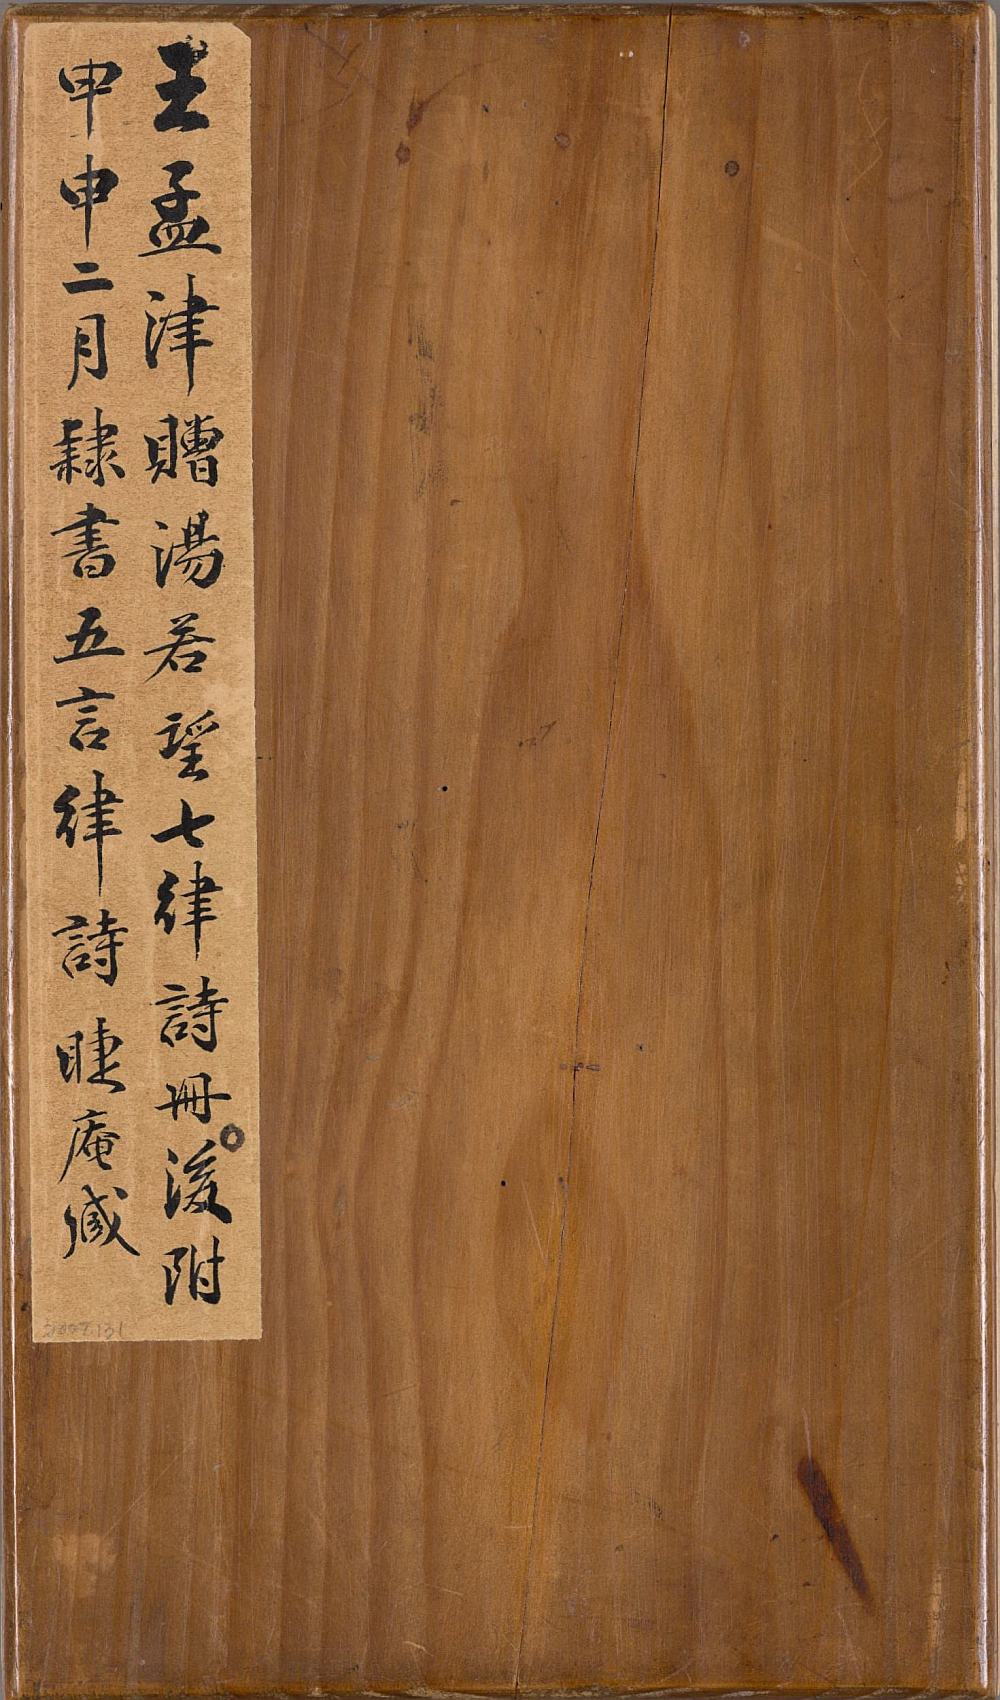 王孟津贈湯若望七律詩冊後附
甲申二月隸書五言律詩 睫庵藏